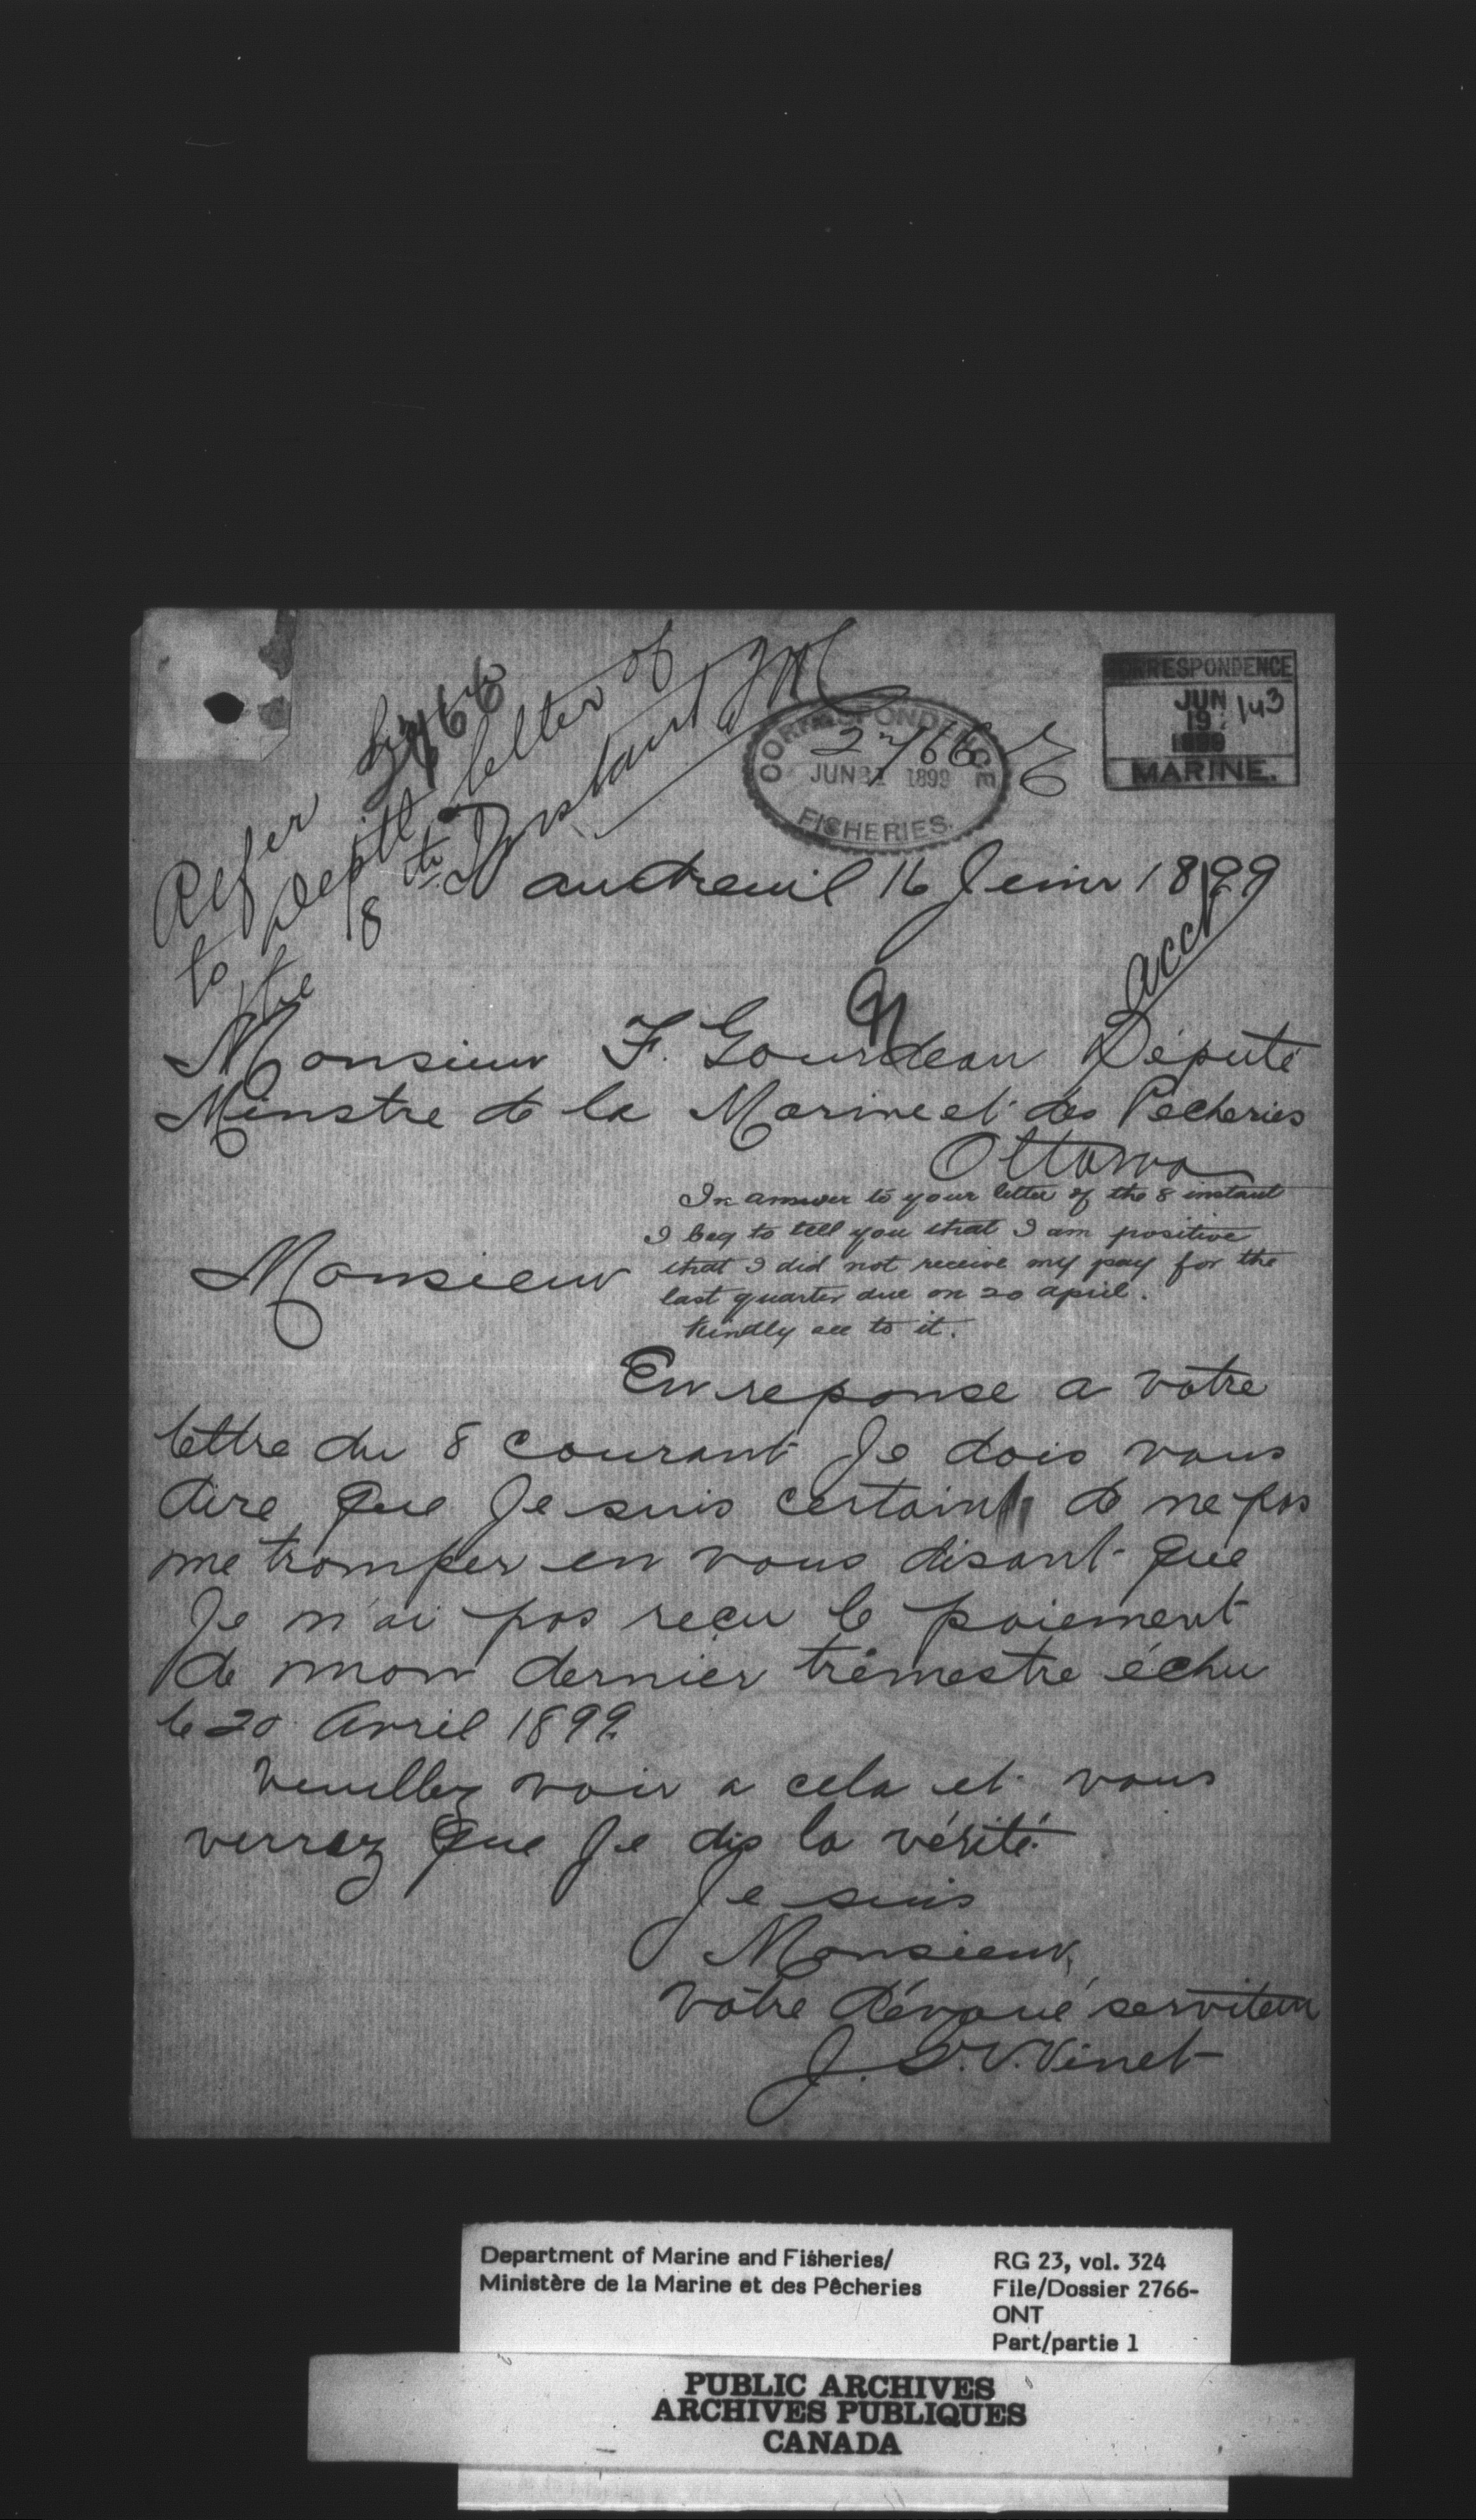 Refer 2766
to Deptl letter of
the 8th Instant
CORRESPONDENCE
2766
JUN 21 1899
FISHERIES
CORRESPONDENCE
JUN 143
19
1899
MARINE.
Vaudreuil 16 Juin 1899
Acct
Monsieur F. Gourdeau Député
Minstre de la Marine et des Pecheries
Ottawa
In answer to your letter of the 8 instant
I beg to tell you that I am positive
that I did not receive my pay for the
last quarter due on 20 april.
Kindly see to it.
Monsieur
En reponse a votre
lettre du 8 courant Je dois vous
dire que Je suis certain de ne pas
me tromper en vous disant que
Je n'ai pas reçu le paiement
de mon dernier trimestre échu
le 20 Avril 1899
Veuillez voir a cela et vous
verrez que Je dis la vérité.
Je suis
Monsieur,
Votre dévoué serviteur
J. V. Vinet
Department of Marine and Fisheries/
Ministère de la Marine et des Pêcheries
RG 23, vol. 324
File/Dossier 2766-
ONT
Part/partie 1
PUBLIC ARCHIVES
ARCHIVES PUBLIQUES
CANADA